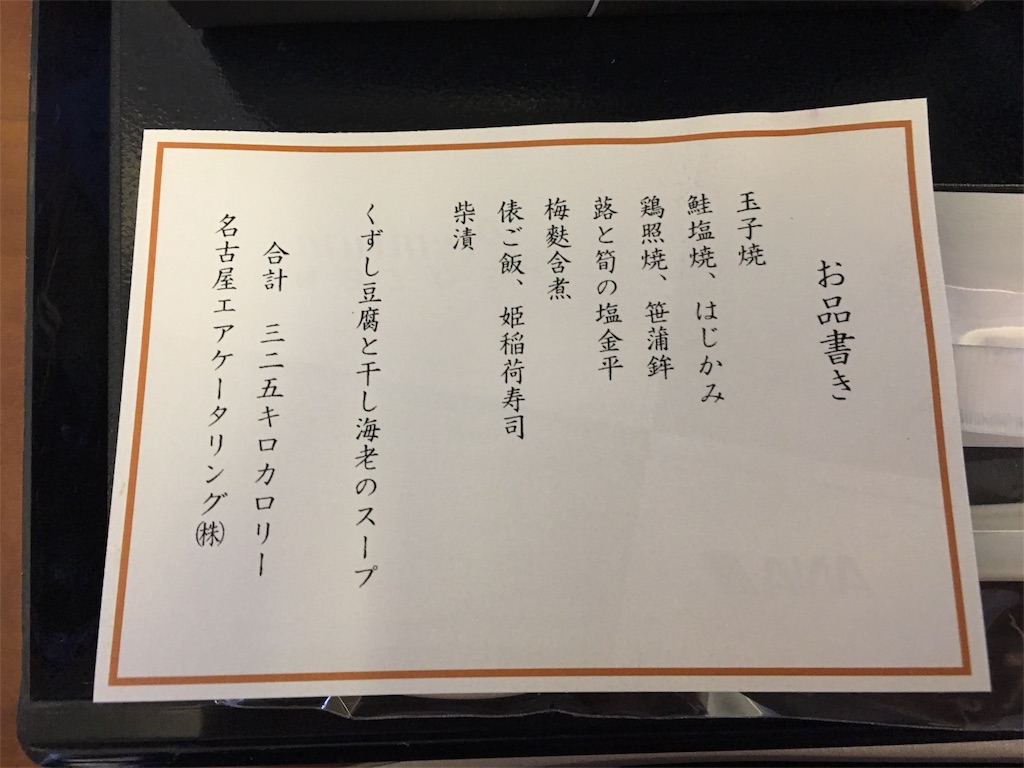 お品書き
玉子焼
鮭塩焼、はじかみ
鶏照焼、笹蒲鉾
蕗と筍の塩金平
梅麩含煮
俵ご飯、姫稲荷寿司
柴漬
くずし豆腐と干し海老のスープ
合計 三二五キロカロリー
名古屋エアケータリング㈱